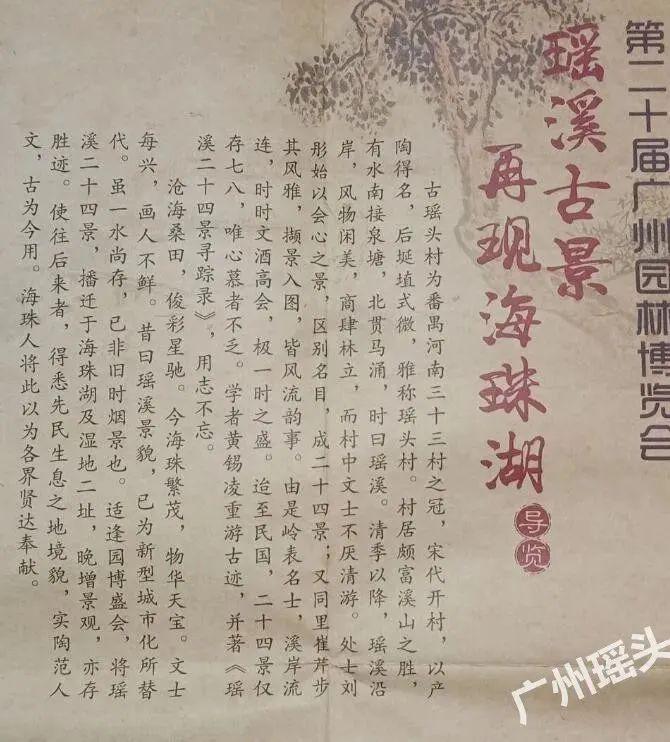 第二十届广州园林博览会
瑶溪古景
再现海珠湖
导览
古瑶头村为番禺河南三十三村之冠，宋代开村，以产
陶得名，后埏埴式微，雅称瑶头村。村居颇富溪山之胜，
有水南接泉塘，北贯马涌，时曰瑶溪。清季以降，瑶溪沿
岸，风物闲美，商肆林立，而村中文士不厌清游。处士刘
彤始以会心之景，区别名目，成二十四景；又同里崔芹步
其风雅，撷景入图，皆风流韵事。由是岭表名士，溪岸流
连，时时文酒高会，极一时之盛。迨至民国，二十四景仅
存七八，唯心慕者不乏。学者黄锡凌重游古迹，并著《瑶
溪二十四景寻踪录》，用志不忘。
沧海桑田，俊彩星驰。今海珠繁茂，物华天宝。文士
每兴，画人不鲜。昔曰瑶溪景貌，已为新型城市化所替
代。虽一水尚存，已非旧时烟景也。适逢园博盛会，将瑶
溪二十四景，播迁于海珠湖及湿地二址，晚增景观，亦存
胜迹。使往后来者，得悉先民生息之地境貌，实陶范人
文，古为今用。海珠人将此以为各界贤达奉献。
广州瑶头